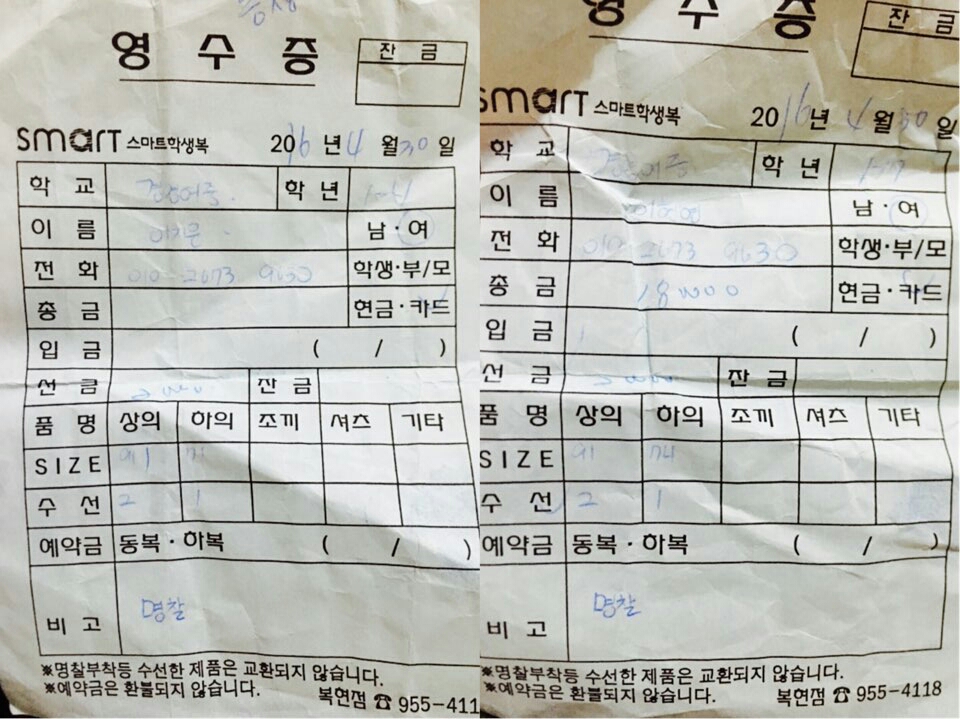 영 수 증
잔 금
smart 스마트학생복 2016년 4월 30일
학 교 학 년
이 름 남 · 여
전 화 010-2673 9630 학생·부/모
총 금 현금·카드
입 금 ( / )
선 금 잔 금
품 명 상의 하의 조끼 셔츠 기타
SIZE 91 71
수 선 2 1
예약금 동복 · 하복 ( / )
비 고 명찰
※명찰부착등 수선한 제품은 교환되지 않습니다.
※예약금은 환불되지 않습니다.
복현점 ☎ 955-411
영 수 증
잔 금
smart 스마트학생복 2016년 4월 30일
학 교 학 년
이 름 남 · 여
전 화 010 2673 9630 학생·부/모
총 금 현금·카드
입 금 ( / )
선 금 잔 금
품 명 상의 하의 조끼 셔츠 기타
SIZE 91 74
수 선 2 1
예약금 동복 · 하복 ( / )
비 고 명찰
※명찰부착등 수선한 제품은 교환되지 않습니다.
※예약금은 환불되지 않습니다.
복현점 ☎ 955-4118